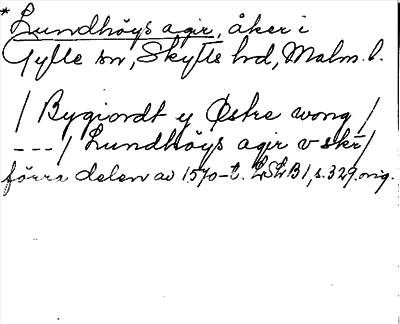 * Lundhöys agir, åker i
Gylle sn, Skytts hd, Malm. l.
/ Bygiordt ey Østre wong /
--- / Lundhöys agir v skr /
förra delen av 1570-t. LSLB 1, s. 329 orig.